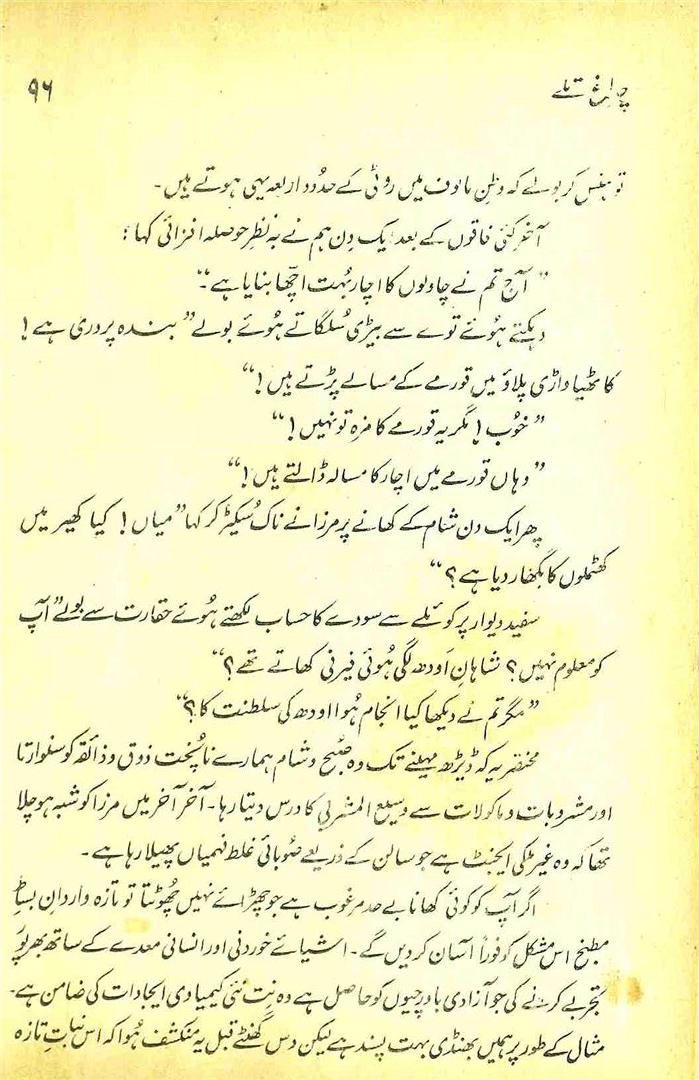 چراغ تلے
۹۶
تو ہنس کر بولے کہ وطنِ مالوف میں روٹی کے حدود اربعہ یہی ہوتے ہیں۔
آخر کئی فاقوں کے بعد ایک دن ہم نے بہ نظرِ حوصلہ افزائی کہا :
”آج تم نے چاولوں کا اچار بُہت اچّھا بنایا ہے۔“
دہکتے ہوئے توے سے بیڑی سُلگاتے ہُوئے بولے ”بندہ پروری ہے !
کاٹھیاواڑی پلاؤ میں قورمے کے مسالے پڑتے ہیں !“
”خوُب ! مگر یہ قورمے کا مزہ تو نہیں !“
”وہاں قورمے میں اچار کا مسالہ ڈالتے ہیں !“
پھر ایک دن شام کے کھانے پر مرزا نے ناک سُکیڑ کر کہا ”میاں ! کیا کھیر میں
کھٹملوں کا بگھار دیا ہے ؟“
سفید دیوار پر کوئلے سے سودے کا حساب لکھتے ہُوئے حقارت سے بولے ”آپ
کو معلوم نہیں ؟ شاہانِ اَودھ لگی ہُوئی فیرنی کھاتے تھے ؟“
”مگر تم نے دیکھا کیا انجام ہُوا اودھ کی سلطنت کا ؟“
مختصر یہ کہ ڈیڑھ مہینے تک وہ صُبح و شام ہمارے ناپُخت ذوق و ذائقہ کو سنوارتا
اور مشروبات و ماکولات سے وسیع المشربی کا درس دیتا رہا۔ آخر آخر میں مرزا کو شبہ ہو چلا
تھا کہ وہ غیر ملکی ایجنٹ ہے جو سالن کے ذریعے صُوبائی غلط فہمیاں پھیلا رہا ہے۔
اگر آپ کو کوئی کھانا بے حد مرغوب ہے جو چھڑائے نہیں چُھوٹتا تو تازہ واردانِ بساطِ
مطبخ اس مشکل کو فوراً آسان کر دیں گے۔ اشیائے خوردنی اور انسانی معدے کے ساتھ بھرپور
تجربے کرنے کی جو آزادی باورچیوں کو حاصل ہے وہ نِت نئی کیمیاوی ایجادات کی ضامن ہے۔
مثال کے طور پر ہمیں بھنڈی بہت پسند ہے لیکن دس گھنٹے قبل یہ منکشف ہُوا کہ اس نباتِ تازہ